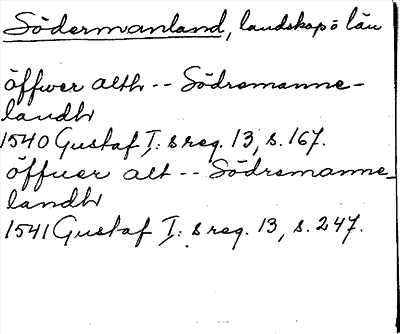 Södermanland, landskap o län
öffwer alth -- Södremanne-
landh
1540 Gustaf I: s reg. 13, s. 167.
öffuer alt -- Södremanne-
landh
1541 Gustaf I: s reg. 13, s. 247.